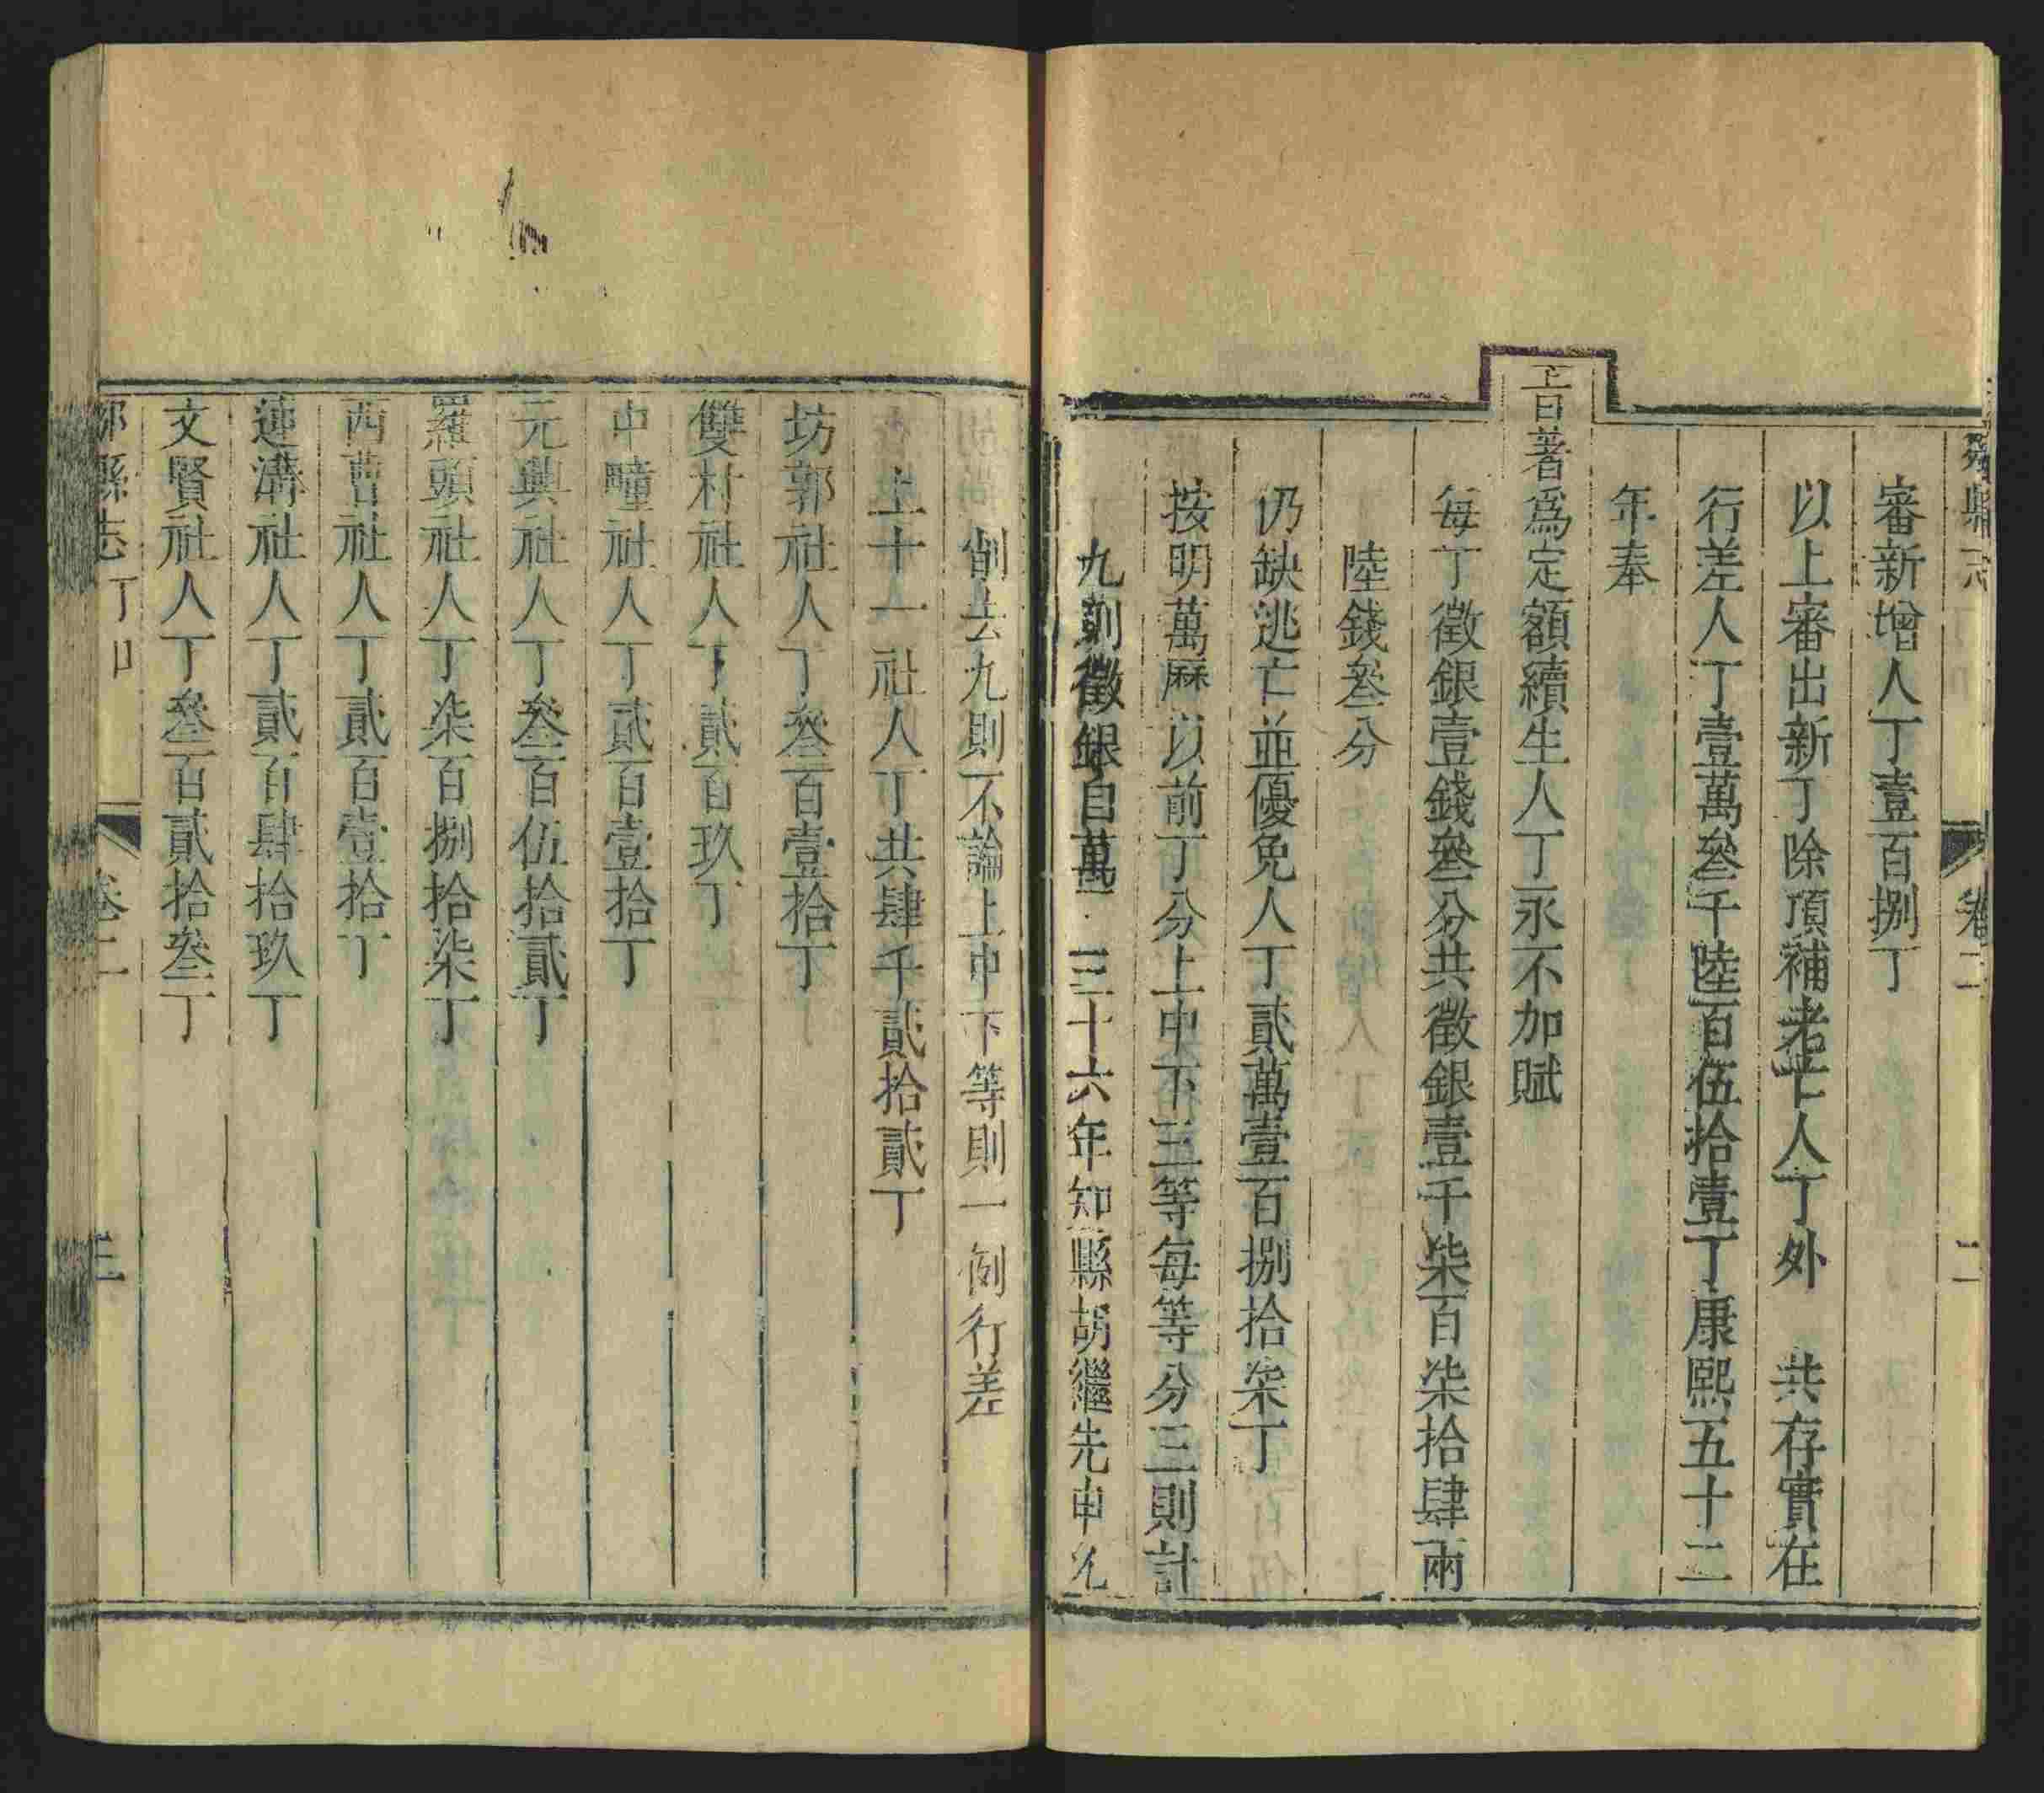 審新增人丁壹百捌丁
以上審出新丁除頂補老亡人丁外 共存實在
行差人丁壹萬叄千陸百伍拾壹丁康熙五十二
年奉
旨著為定額續生人丁永不加賦
每丁徵銀壹錢叄分共徵銀壹千柒百柒拾肆兩
陸錢叄分
仍缺逃亡並優免人丁貳萬壹百捌拾柒丁
按明萬曆以前丁分上中下三等每等分三則計
九則徵銀自萬 三十六年知縣胡繼先申允
削去九則不論上中下等則一例行差
上十一社人丁共肆千貳拾貳丁
坊郭社人丁叄百壹拾丁
雙村社人丁貳百玖丁
中疃社人丁貳百壹拾丁
元興社人丁叄百伍拾貳丁
羅頭社人丁柒百捌拾柒丁
西曹社人丁貳百壹拾丁
蓮溝社人丁貳百肆拾玖丁
文賢社人丁叄百貳拾叄丁
縣志 卷二 三